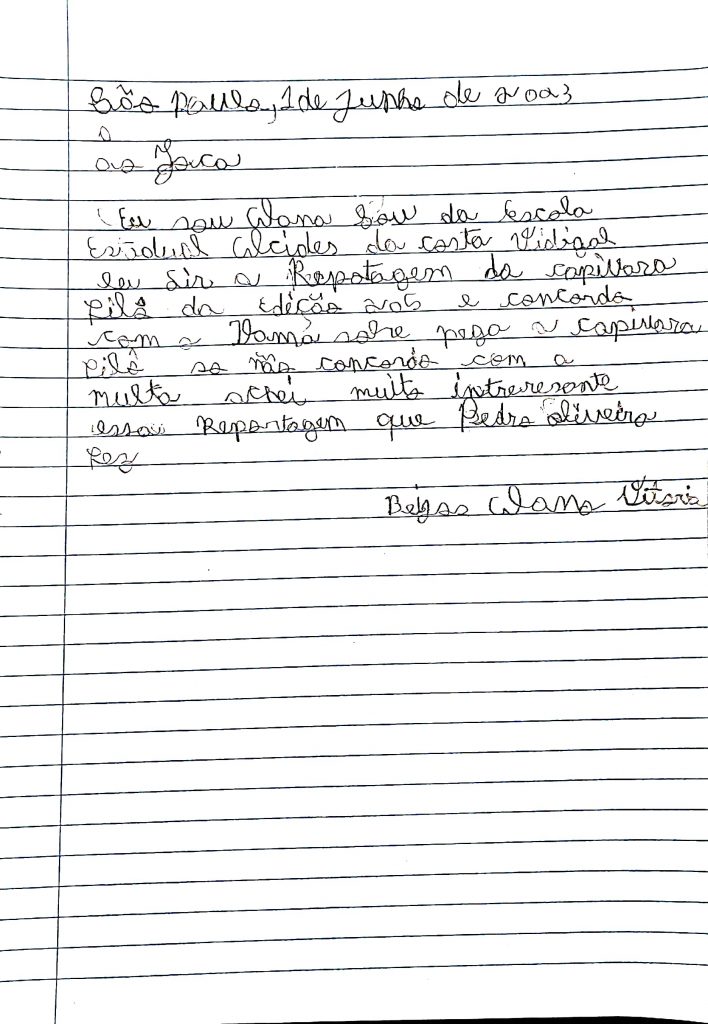 São Paulo, 1 de Junho de 2003
o
ao Joca
Eu sou Alana Sou da Escola
Estadual Alcides da costa Vidigal
eu a Repotagem da capivara
Filô da Edição 205 e concordo
com a sobre pega a capivara
Filô so não concordo com a
multa achei muito intreresante
essa Reportagem que Pedro oliveira
Fez
Beijos Alana Vitoria